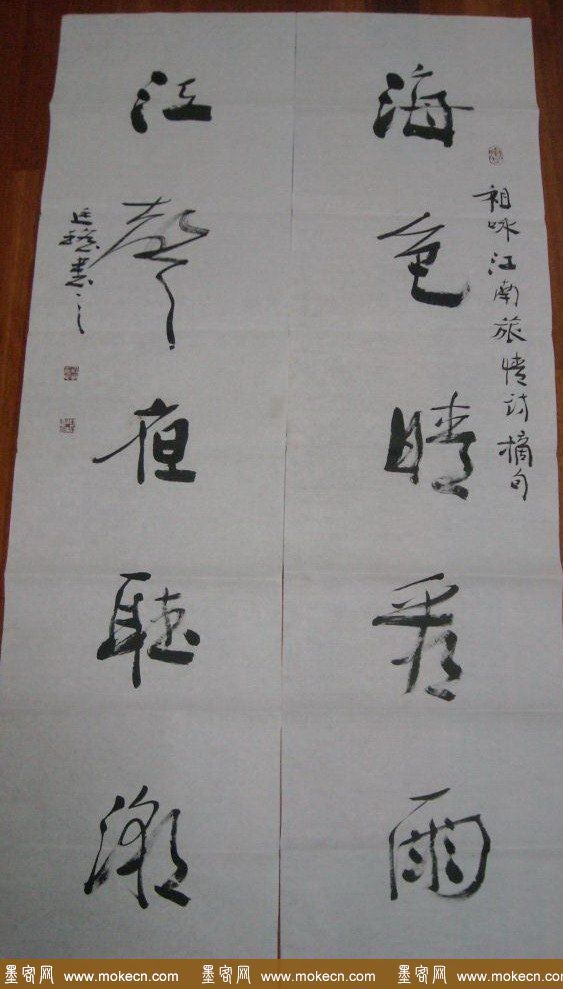 海色晴看雨
江聲夜聽潮
祖咏江南旅情詩摘句
書
墨客网 www.mokecn.com 墨客网 www.mokecn.com 墨客网 www.mokecn.com